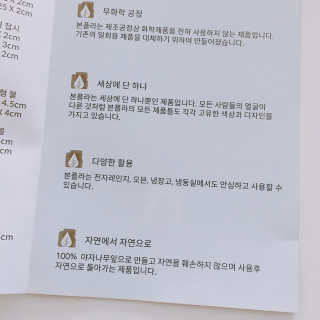 무화학 공정
본플라는 제조공정상 화학제품을 전혀 사용하지 않는 제품입니다.
기존의 일회용 제품을 대체하기 위하여 만들어졌습니다.
세상에 단 하나
본플라는 세상에 단 하나뿐인 제품입니다. 모든 사람들의 얼굴이
다른 것처럼 본플라의 모든 제품들도 각각 고유한 색상과 디자인을
가지고 있습니다.
다양한 활용
본플라는 전자레인지, 오븐, 냉장고, 냉동실에서도 안심하고 사용할 수
있습니다.
자연에서 자연으로
100% 야자나무잎으로 만들고 자연을 훼손하지 않으며 사용후
자연으로 돌아가는 제품입니다.
25 X 2cm
접시
X 2cm
3cm
2cm
형 볼
4.5cm
X 4cm
cm
cm
cm
cm